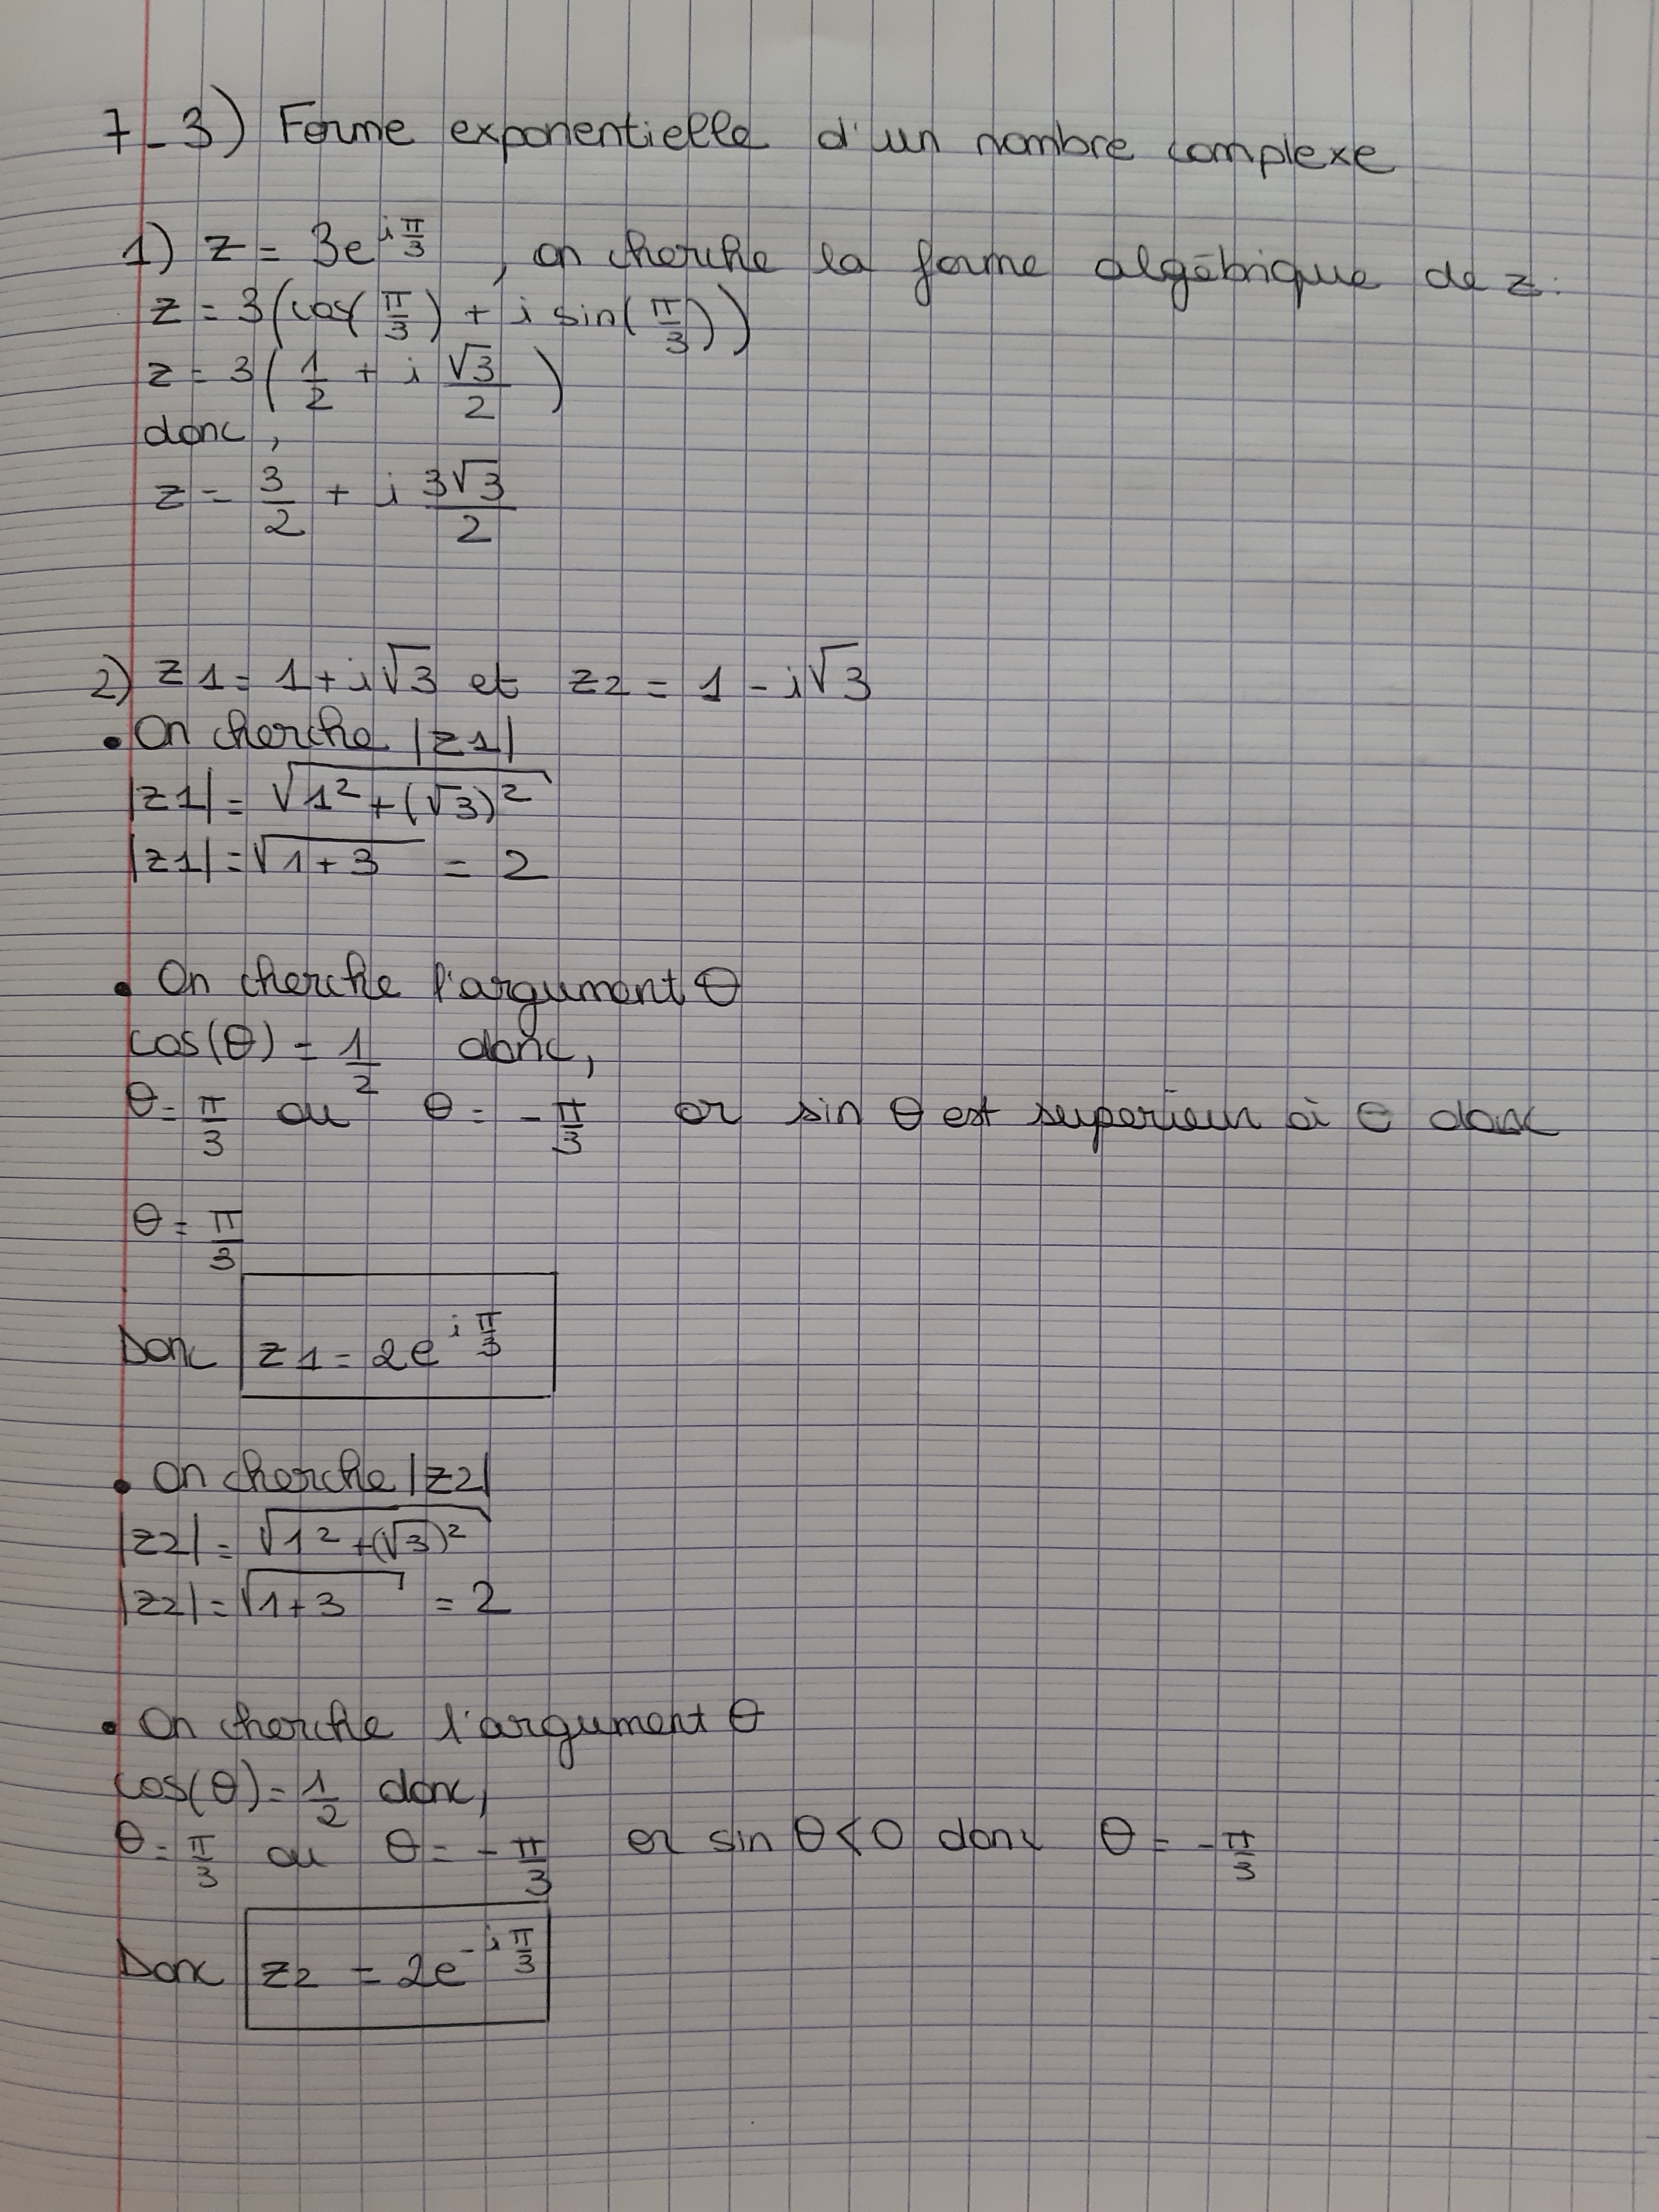 7-3) Forme exponentielle d'un nombre complexe
1) z = 3e^{iπ/3}, on cherche la forme algébrique de z.
z = 3(cos(π/3) + i sin(π/3))
z = 3(1/2 + i √3/2)
donc,
z = 3/2 + i 3√3/2
2) z1 = 1+i√3 et z2 = 1-i√3
• On cherche |z1|
|z1| = √(1²+(√3)²)
|z1| = √(1+3) = 2
• On cherche l'argument θ
cos(θ) = 1/2 donc,
θ = π/3 ou θ = -π/3 or sin θ est supérieur à θ donc
θ = π/3
Donc z1 = 2e^{iπ/3}
• On cherche |z2|
|z2| = √(1²+(√3)²)
|z2| = √(1+3) = 2
• On cherche l'argument θ
cos(θ) = 1/2 donc,
θ = π/3 ou θ = -π/3 or sin θ<0 donc θ = -π/3
Donc z2 = 2e^{-iπ/3}